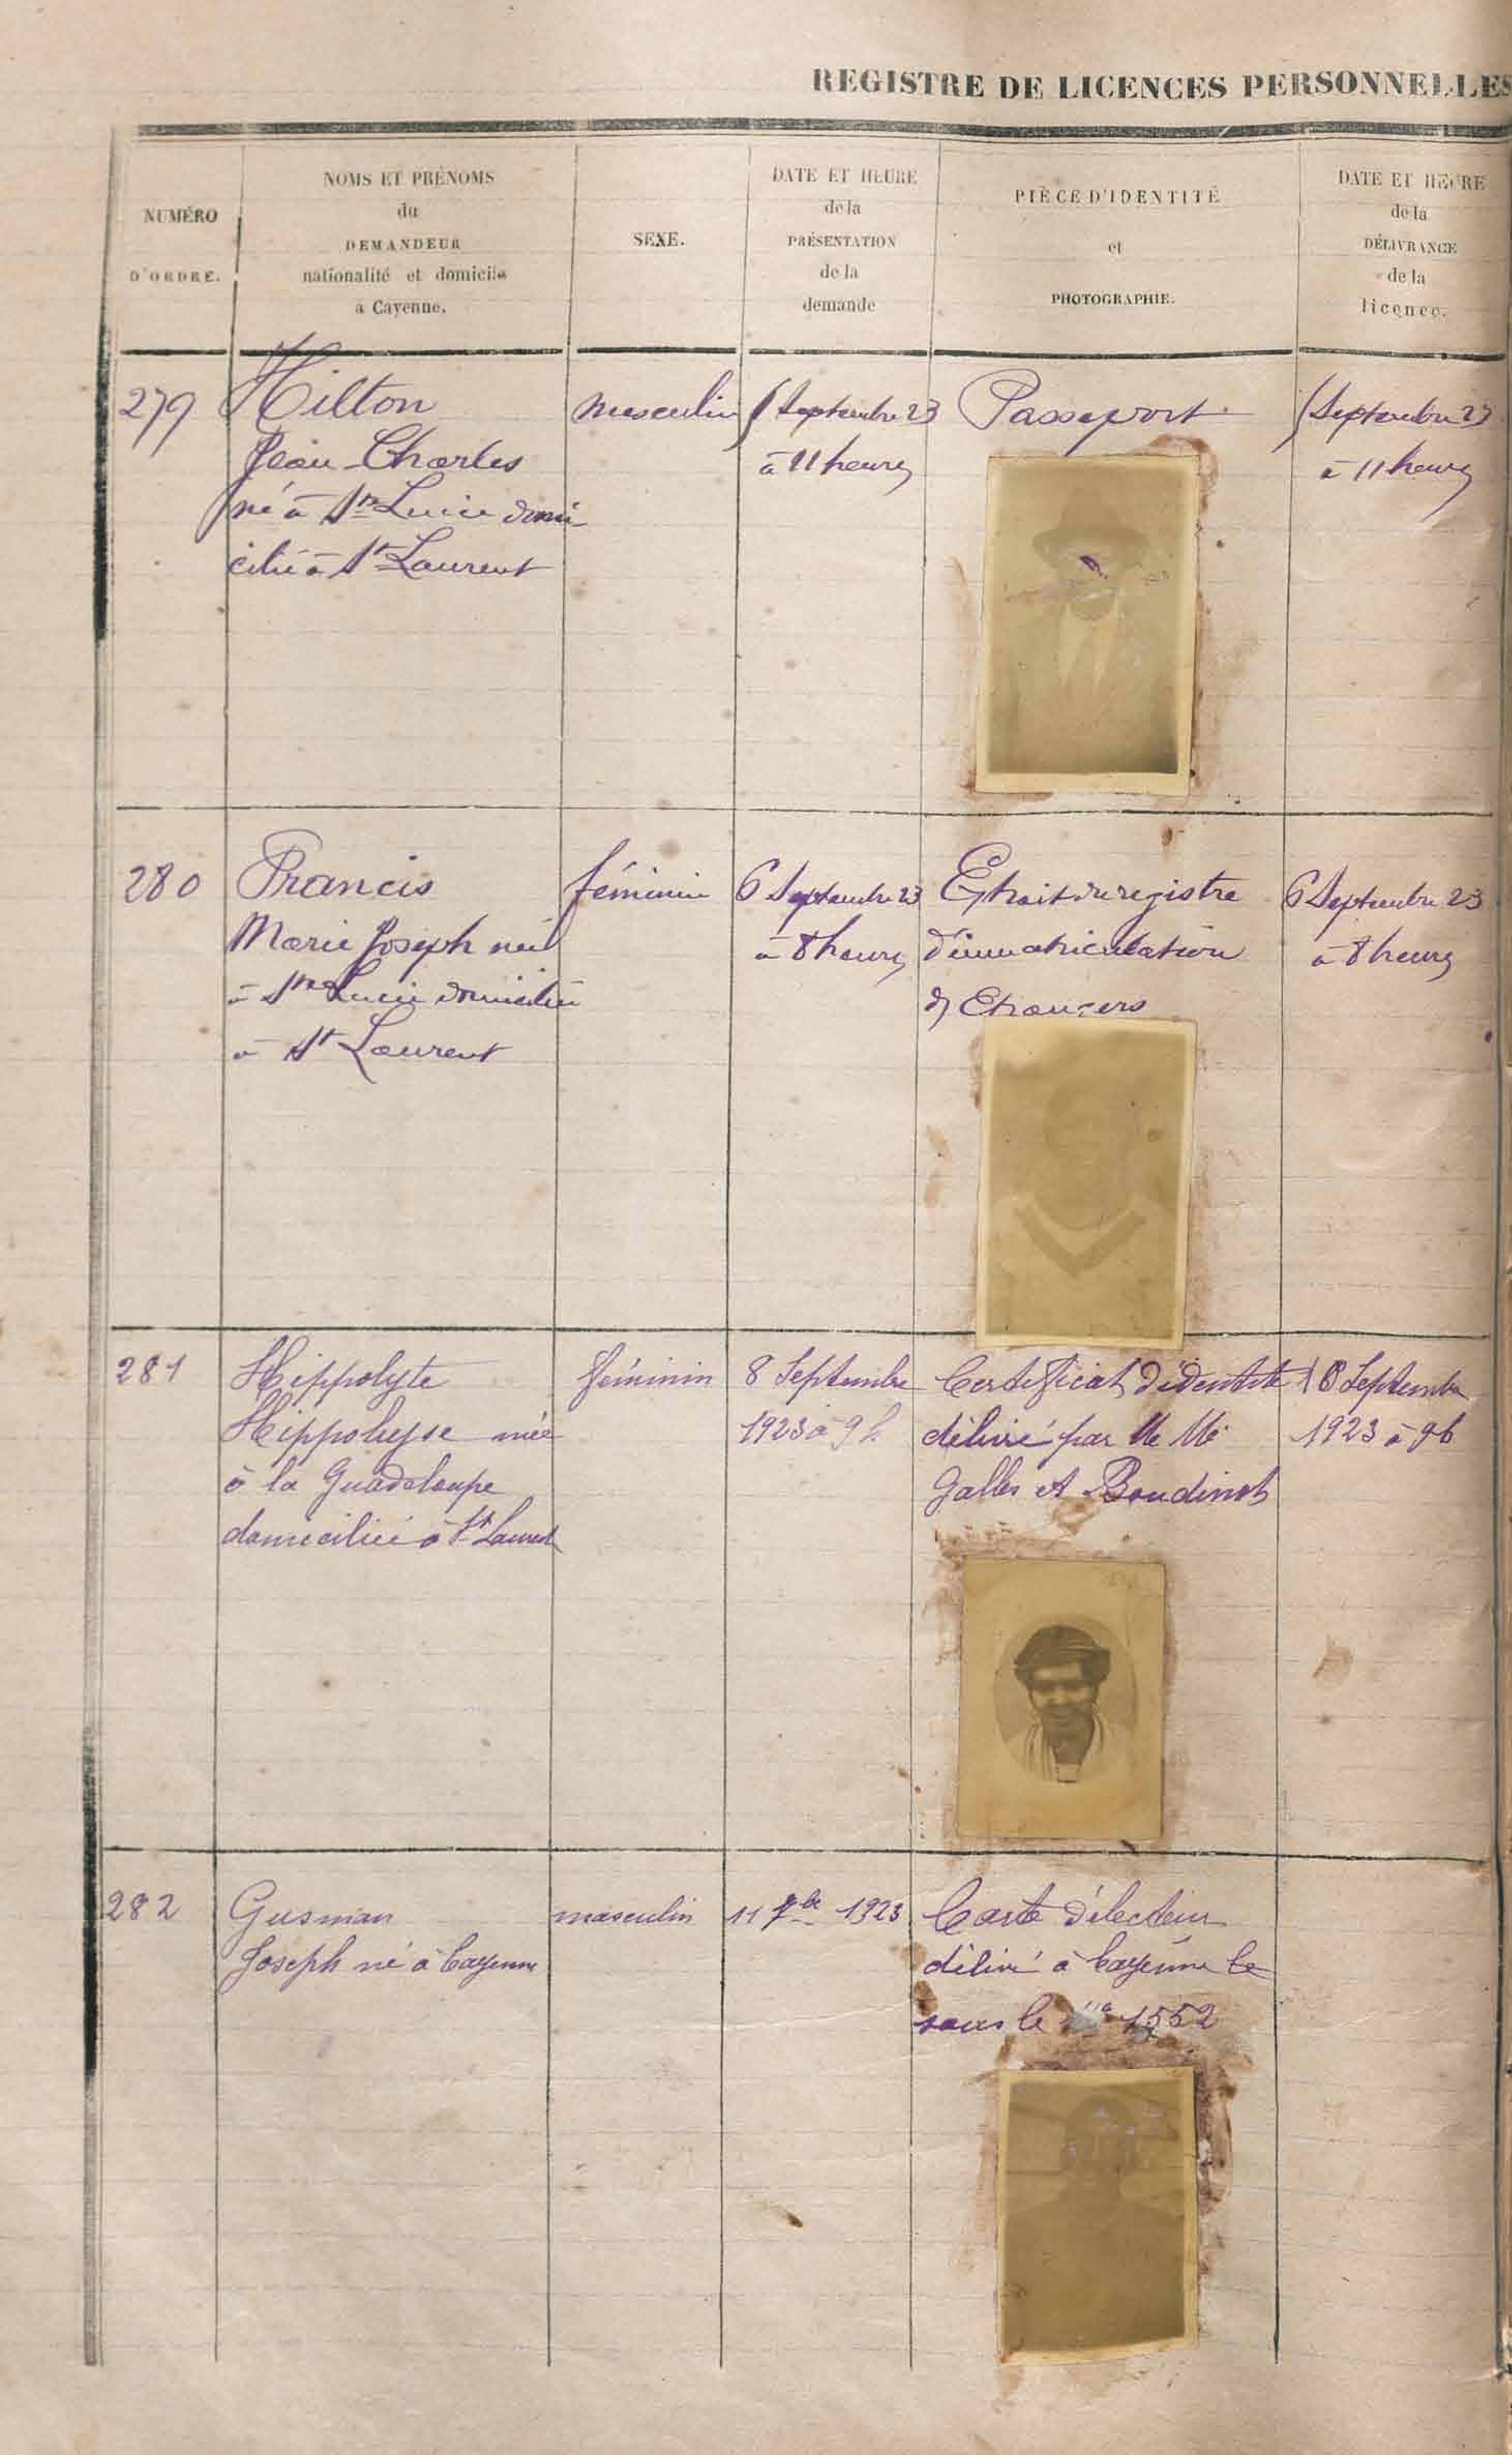 REGISTRE DE LICENCES PERSONNELLES
NUMÉRO
D'ORDRE.
NOMS ET PRÉNOMS
du
DEMANDEUR
nationalité et domicile
a Cayenne.
SEXE.
DATE ET HEURE
de la
PRÉSENTATION
de la
demande
PIÈCE D'IDENTITÉ
et
PHOTOGRAPHIE.
DATE ET HEURE
de la
DÉLIVRANCE
de la
licence.
279
Hilton
Jean-Charles
né à Ste Lucie domi
cilié à St Laurent
masculin
Septembre 23
à 11 heures
Passeport
Septembre 23
à 11 heures
280
Francis
Marie Joseph née
à Ste Lucie domiciliée
à St Laurent
féminin
6 Septembre 23
à 8 heures
Extrait du registre
d'immatriculation
des Etrangers
6 Septembre 23
à 8 heures
281
Hippolyte
née
à la Guadeloupe
domiciliée à St Laurent
féminin
8 Septembre
1923 à 9 h
Certificat d'identité
délivré par
Galles et Boudinot
8 Septembre
1923 à 9h
282
Gusman
Joseph né à Cayenne
masculin
11 7bre 1923
Carte d'électeur
délivré à Cayenne le
sous le n° 1552